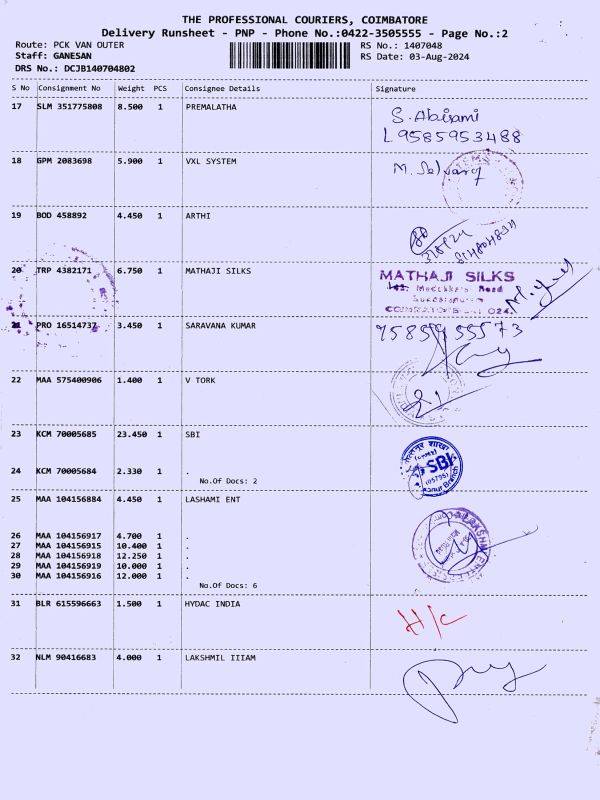 THE PROFESSIONAL COURIERS, COIMBATORE
Delivery Runsheet - PNP - Phone No.:0422-3505555 - Page No.:2
Route: PCK VAN OUTER RS No.: 1407048
Staff: GANESAN RS Date: 03-Aug-2024
DRS No.: DCJB140704802
S No Consignment No Weight PCS Consignee Details Signature
17 SLM 351775808 8.500 1 PREMALATHA
S. Abirami
L 9585953488
18 GPM 2083698 5.900 1 VXL SYSTEM M. Selvaraj
19 BOD 458892 4.450 1 ARTHI
20 TRP 4382171 6.750 1 MATHAJI SILKS MATHAJI SILKS
Road
COIMBATORE-641 024.
21 PRO 16514737 3.450 1 SARAVANA KUMAR
22 MAA 575400906 1.400 1 V TORK
23 KCM 70005685 23.450 1 SBI
SBI
24 KCM 70005684 2.330 1 .
No.Of Docs: 2
25 MAA 104156884 4.450 1 LASHAMI ENT
26 MAA 104156917 4.700 1 .
27 MAA 104156915 10.400 1 .
28 MAA 104156918 12.250 1 .
29 MAA 104156919 10.000 1 .
30 MAA 104156916 12.000 1 .
No.Of Docs: 6
31 BLR 615596663 1.500 1 HYDAC INDIA H/C
32 NLM 90416683 4.000 1 LAKSHMIL IIIAM